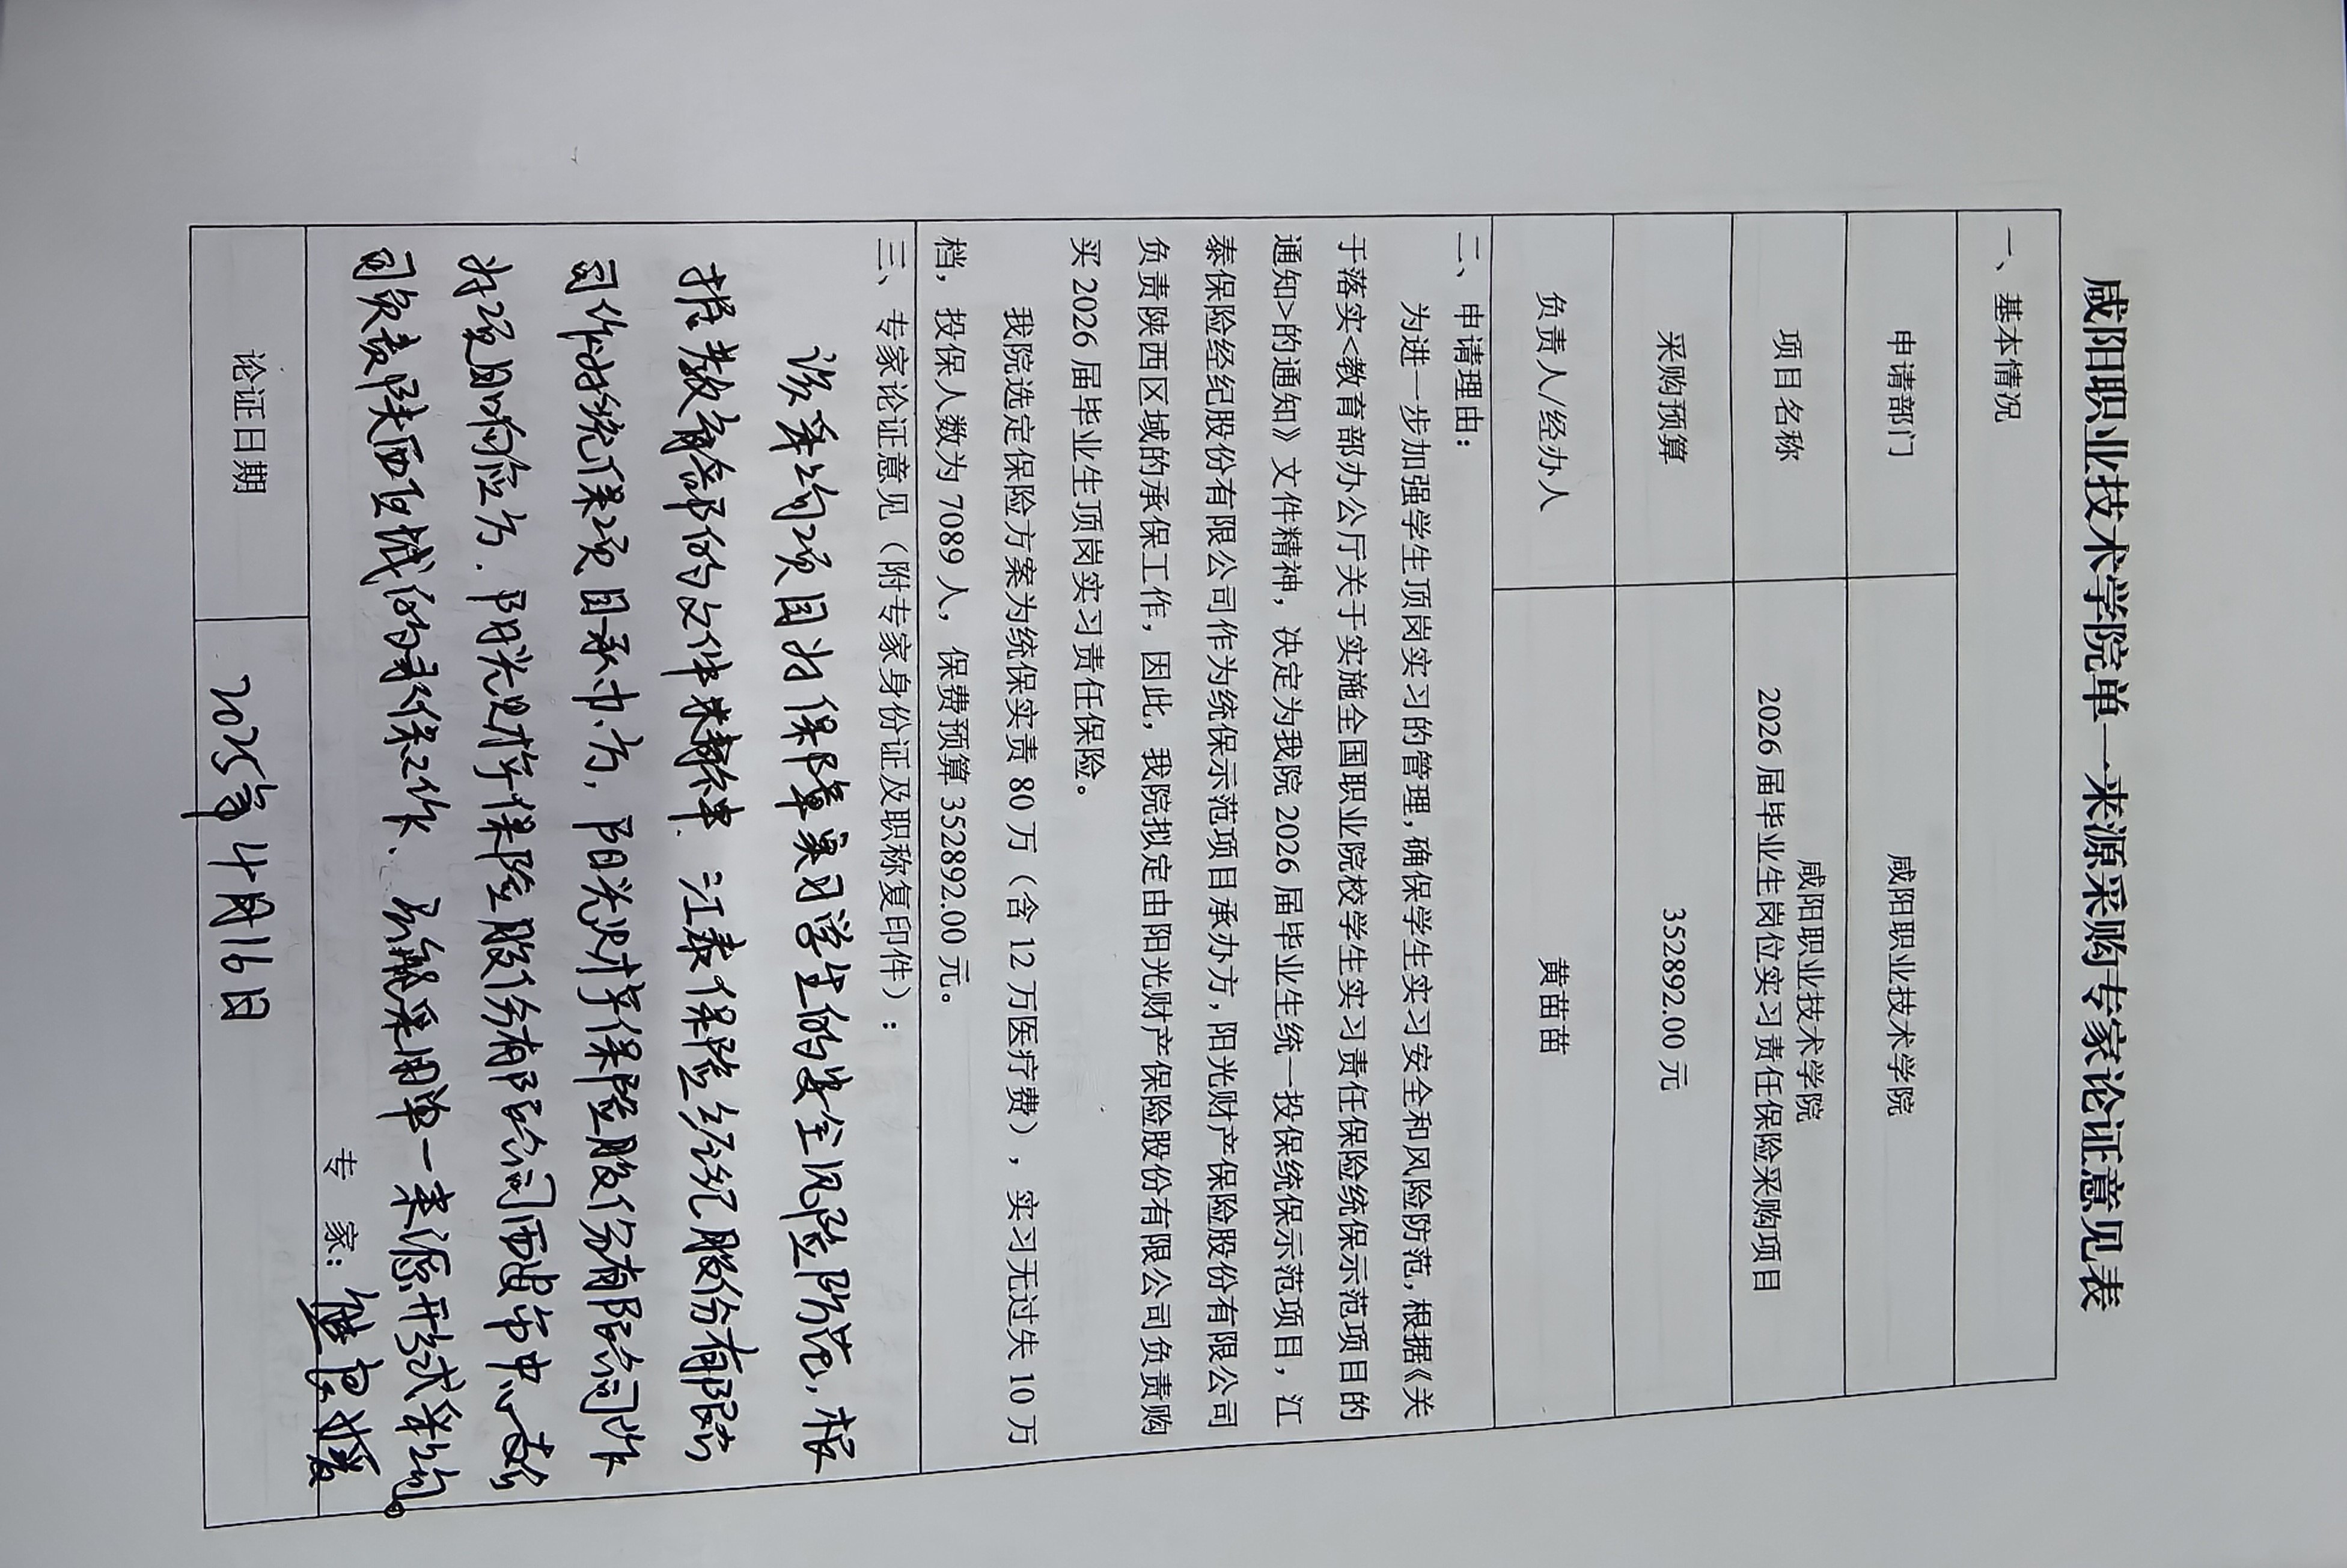 咸阳职业技术学院单一来源采购专家论证意见表
一、基本情况
申请部门 咸阳职业技术学院
项目名称 咸阳职业技术学院
2026 届毕业生岗位实习责任保险采购项目
采购预算 352892.00 元
负责人/经办人 黄苗苗
二、申请理由：
为进一步加强学生顶岗实习的管理，确保学生实习安全和风险防范，根据《关
于落实<教育部办公厅关于实施全国职业院校学生实习责任保险统保示范项目的
通知>的通知》文件精神，决定为我院 2026 届毕业生统一投保统保示范项目，江
泰保险经纪股份有限公司作为统保示范项目承办方，阳光财产保险股份有限公司
负责陕西区域的承保工作，因此，我院拟定由阳光财产保险股份有限公司负责购
买 2026 届毕业生顶岗实习责任保险。
我院选定保险方案为统保实责 80 万（含 12 万医疗费），实习无过失 10 万
档，投保人数为 7089 人，保费预算 352892.00 元。
三、专家论证意见（附专家身份证及职称复印件）：
该采购项目为保障实习学生的安全风险防范，根
据教育部的文件精神，江泰保险经纪股份有限公
司作为统保项目承办方，阳光财产保险股份有限公司作
为项目响应方．阳光财产保险股份有限公司西安市中心支公
司负责陕西区域的承保工作．采用单一来源形式采购。
专 家：
论证日期 2025年4月16日